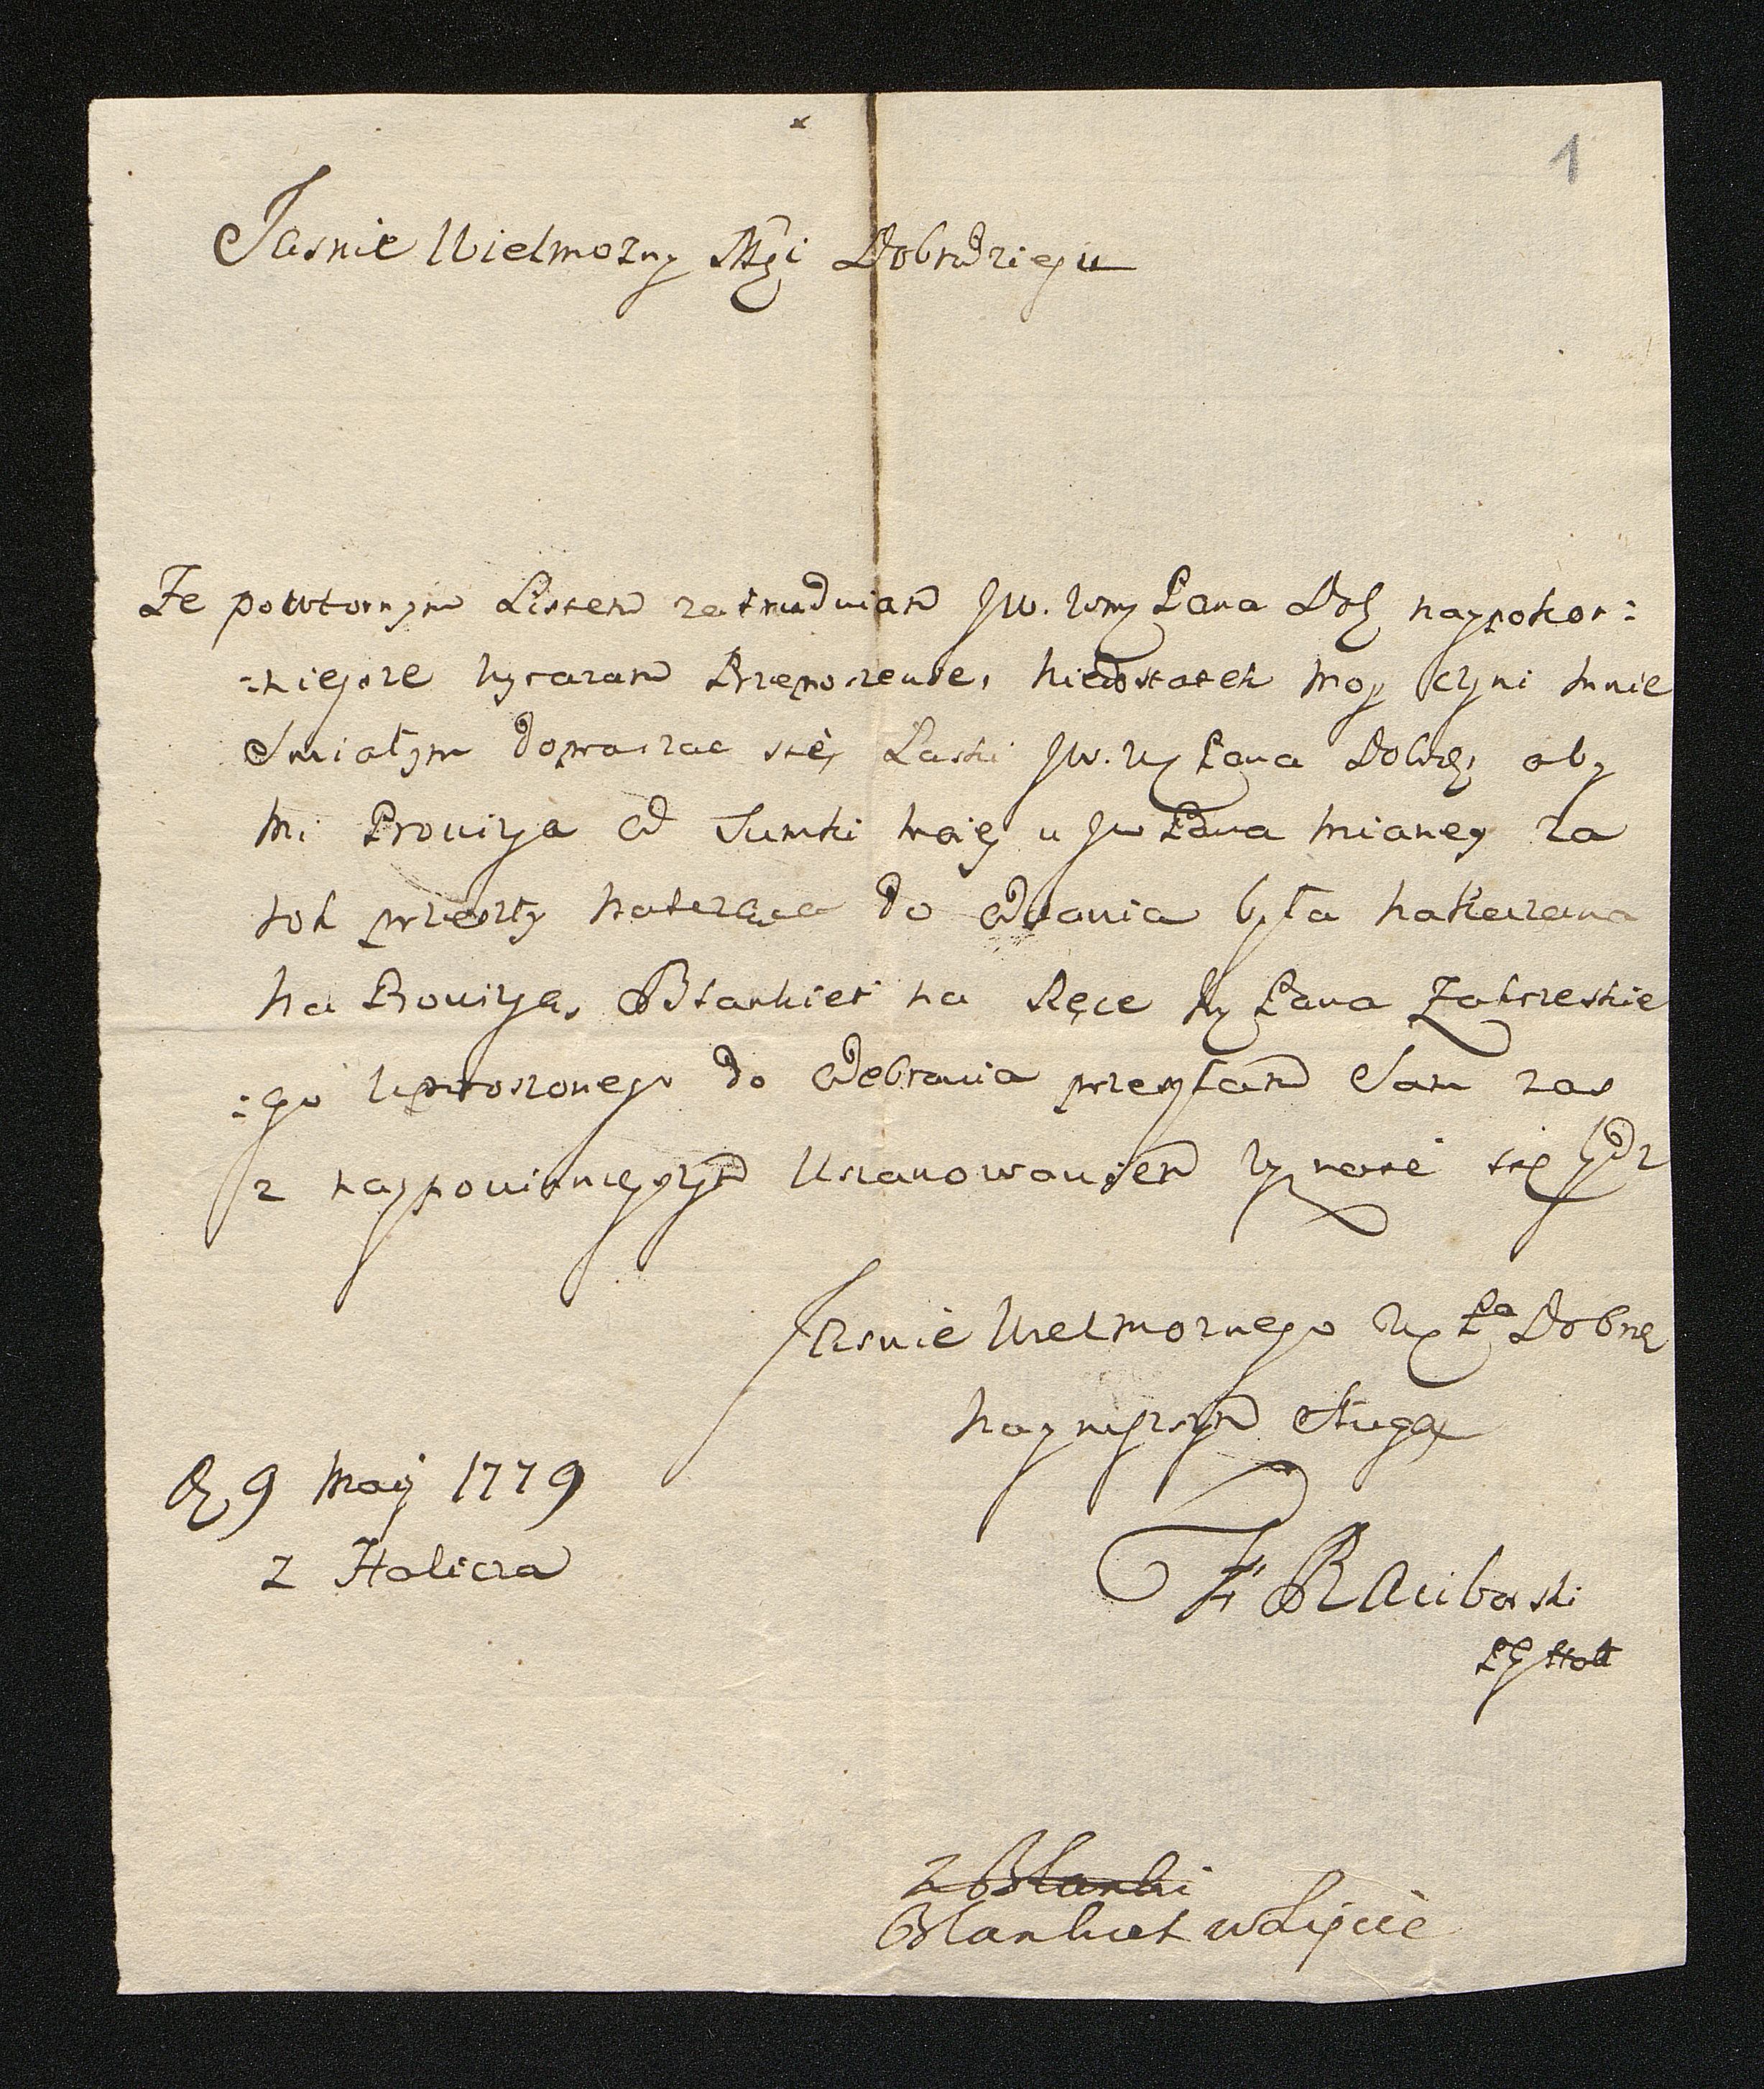 1
Jasnie Wielmozny Mgi Dobrodzieju
Ze powtornym Listem zatrudniam JW. Wmg Pana Dob naypokor:
:nieysze wyrazam Przeproszenie, niedostatek moy czyni mnie
Smiałym dopraszac się Łaski JW. Wg Pana Dobrg, aby
mi Prowizya od Sumki moiey u JW Pana mianey za
rok przeszły należąca do oddania była nakazana
na Prowizyą, Blankiet na Ręce Wg Pana Zakrzeskie
:go uproszonego do odebrania przesyłam Sam zas
z naypowinnieyszym Uszanowaniem wyznaie się bydz
Jasnie Wielmoznego Wg Pa Dobrg
nayniszszym Sługą
D 9 Maij 1779
z Halicza
F Raciborski
z Blanki
Blankiet w Liście